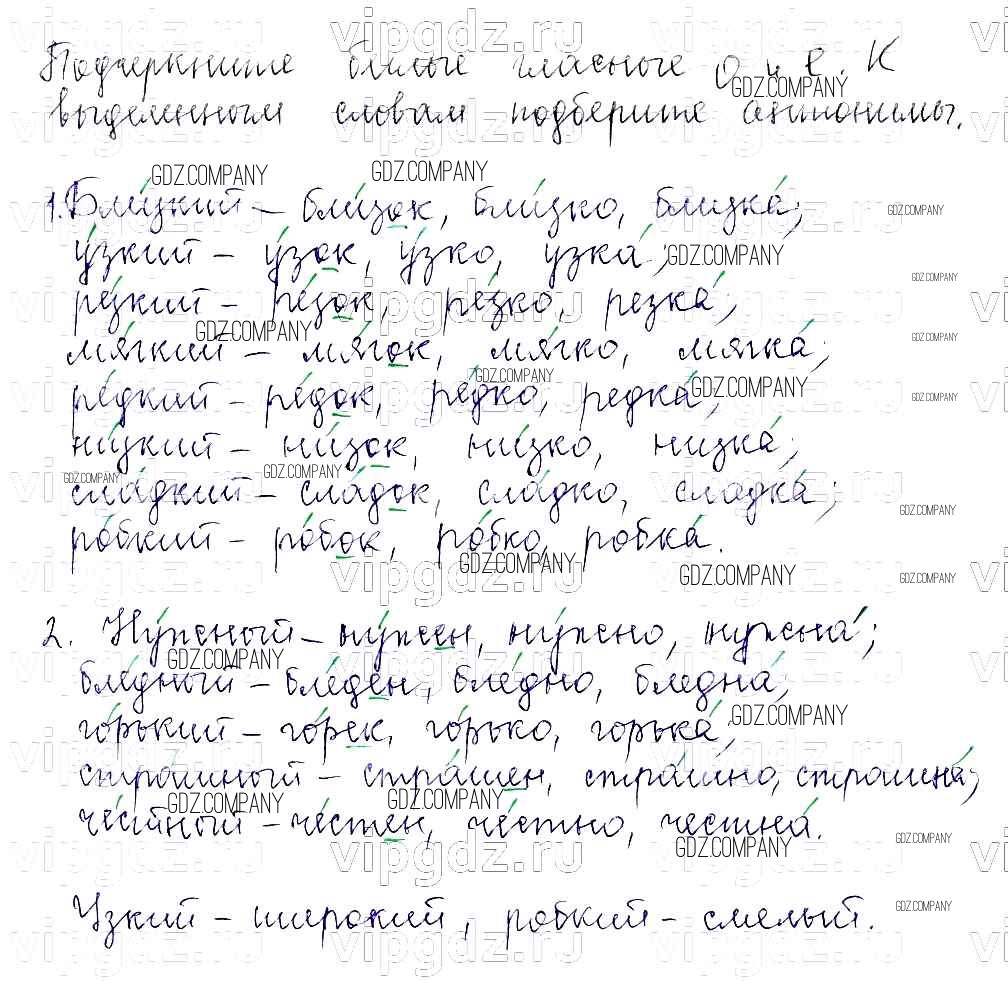 Подчеркните беглые гласные О и е. К
выделенным словам подберите антонимы.
1. Бли́зкий – бли́зок, бли́зко, близка́;
у́зкий – у́зок, у́зко, узка́;
ре́зкий – ре́зок, ре́зко, резка́;
мя́гкий – мя́гок, мя́гко, мягка́;
ре́дкий – ре́док, ре́дко, редка́;
ни́зкий – ни́зок, ни́зко, низка́;
сла́дкий – сла́док, сла́дко, сладка́;
ро́бкий – ро́бок, ро́бко, робка́.
2. Ну́жный – ну́жен, ну́жно, нужна́;
бле́дный – бле́ден, бле́дно, бледна́;
го́рький – го́рек, го́рько, горька́;
стра́шный – стра́шен, стра́шно, страшна́;
че́стный – че́стен, че́стно, честна́.
Узкий – широкий, робкий – смелый.